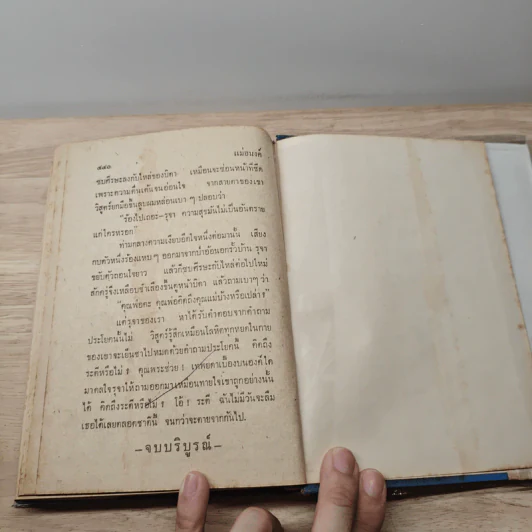 ๔๔๐ แม่อนงค์
ซบศีรษะลงกับไหล่ของบิดา เหมือนจะซ่อนหน้าที่ซีด
เพราะความตื่นเต้นจนอ่อนใจ จากสายตาของเขา
วิสูตร์ยกมือขึ้นลูบผมหล่อนเบา ๆ ปลอบว่า
"ร้องไปเถอะ–รุจา ความสุขมันไม่เป็นอันตราย
แก่ใครหรอก"
ท่ามกลางความเงียบอึดใจหนึ่งต่อมานั้น เสียง
กบตัวหนึ่งร้องแหบ ๆ ออกมาจากป่าอ้อนอกรั้วบ้าน รุจา
ขยับตัวถอนใจยาว แล้วก็ซบศีรษะกับไหล่ต่อไปใหม่
สักครู่จึงเหลือบชำเลืองขึ้นดูหน้าบิดา แล้วถามเบาๆ ว่า
"คุณพ่อคะ คุณพ่อคิดถึงคุณแม่บ้างหรือเปล่า?"
แต่รุจาของเรา หาได้รับคำตอบจากคำถาม
ประโยคนั้นไม่ วิสูตร์รู้สึกเหมือนโลหิตทุกหยดในกาย
ของเขาจะเย็นชาไปหมดด้วยคำถามประโยคนี้ คิดถึง
ระดีหรือไม่? คุณพระช่วย! เทพยดาเบื้องบนองค์ใด
มาดลใจรุจาให้ถามออกมาเหมือนทายใจเขาถูกอย่างนั้น
ได้ คิดถึงระดีหรือไม่? โอ้! ระดี ฉันไม่มีวันจะลืม
เธอได้เลยตลอดชาตินี้ จนกว่าจะตายจากกันไป.
–จบบริบูรณ์–